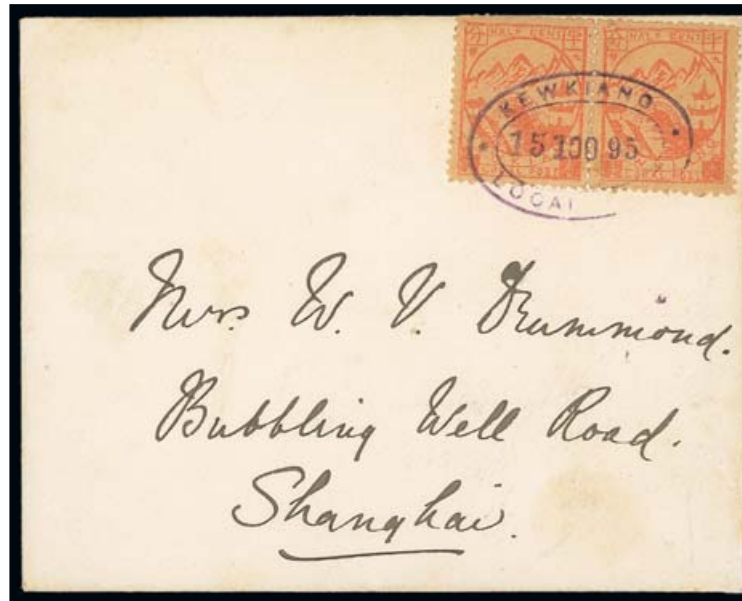 HALF CENT HALF CENT
KEWKIANG
15 AUG 95
LOCAL
Mrs. W. V. Drummond.
Bubbling Well Road.
Shanghai.